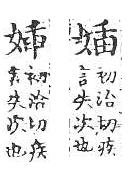 初洽切疾
言失次也
初洽切疾
言失次也